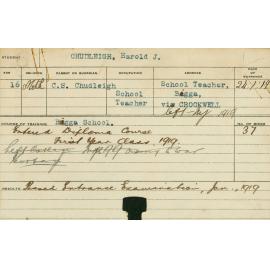 STUDENT CHUDLEIGH, Harold J.
AGE RELIGION PARENT OR GUARDIAN OCCUPATION ADDRESS
16 Meth. C.S. Chudleigh School Teacher School Teacher, Bigga, via CROOKWELL 24/1/19
1919
COURSE OF TRAINING Bigga School. NO. OF WIRES
Entered Diploma Course 37
First Year Class 1919.
Left College
RESULTS Passed Entrance Examination, Jan., 1919